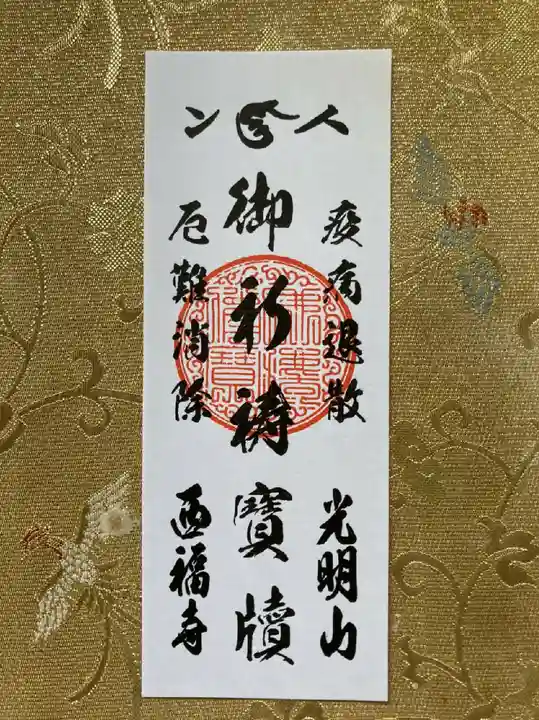 疫病退散
光明山
御祈祷寳牘
厄難消除
西福寺